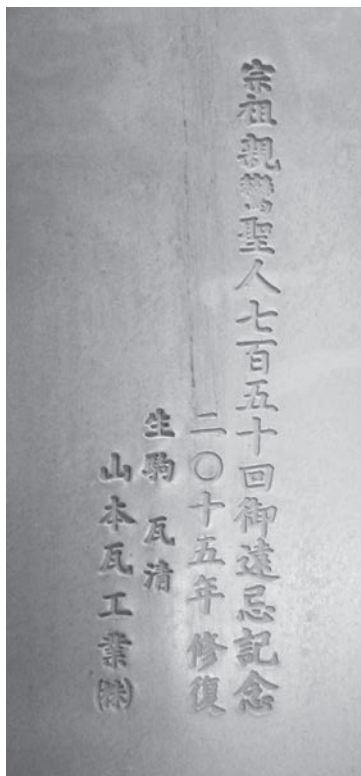 宗祖親鸞聖人七百五十回御遠忌記念
二〇十五年修復
生駒 瓦清
山本瓦工業㈱